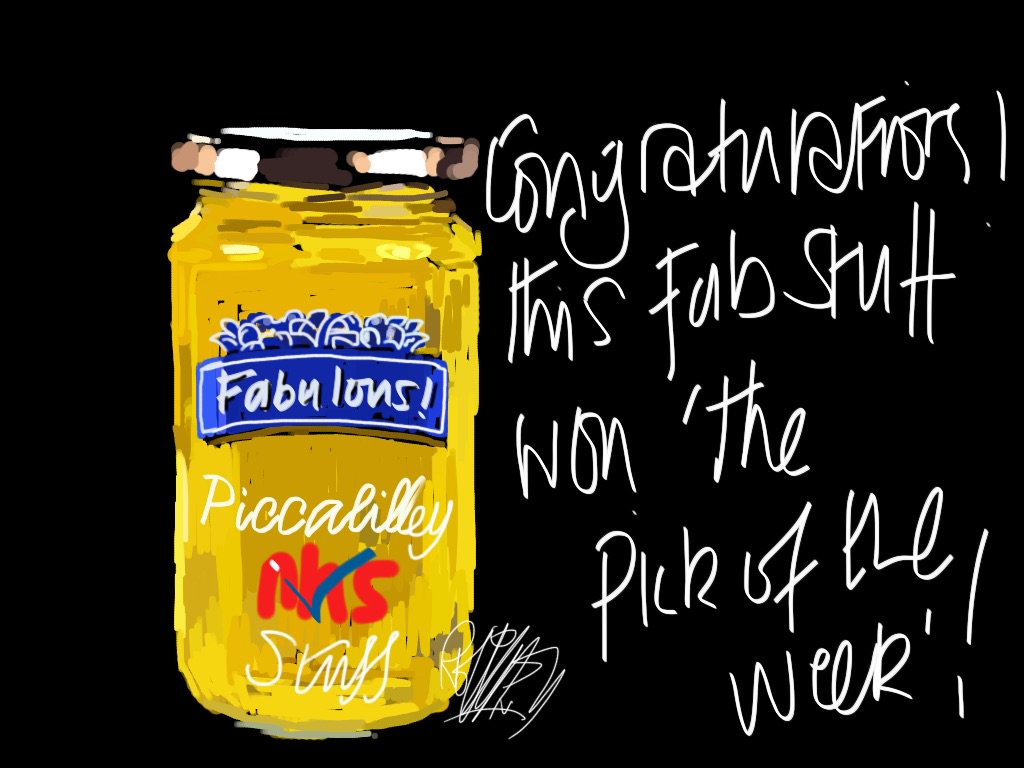 Fabulous!
Piccalilley
NHS
Stuff
Congratulations!
this Fab Stuff
won 'the
Pick of the
week'!